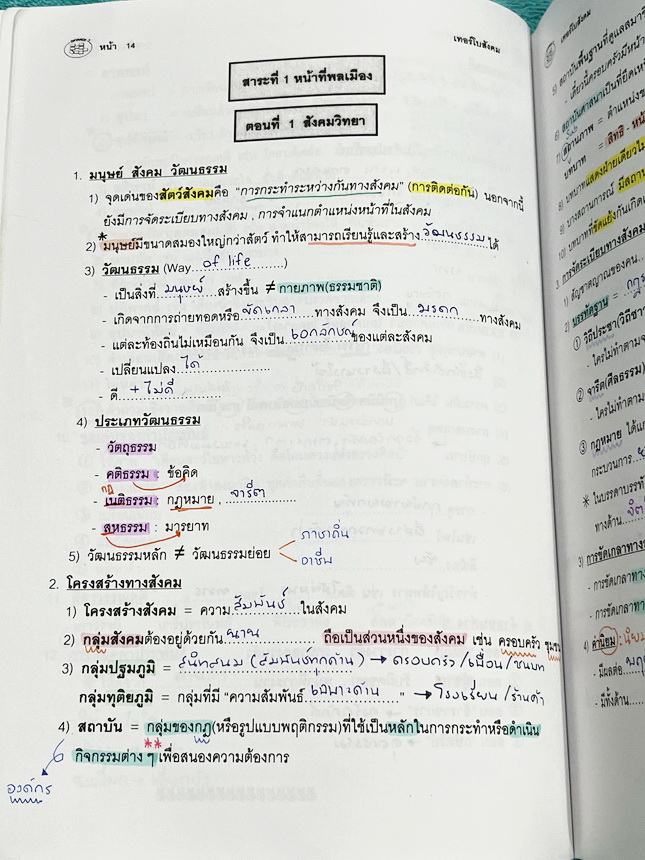 หน้า 14
เทอร์โบสังคม
สาระที่ 1 หน้าที่พลเมือง
ตอนที่ 1 สังคมวิทยา
1. มนุษย์ สังคม วัฒนธรรม
1) จุดเด่นของสัตว์สังคมคือ "การกระทำระหว่างกันทางสังคม" (การติดต่อกัน) นอกจากนี้
ยังมีการจัดระเบียบทางสังคม , การจำแนกตำแหน่งหน้าที่ในสังคม
2) *มนุษย์มีขนาดสมองใหญ่กว่าสัตว์ ทำให้สามารถเรียนรู้และสร้าง วัฒนธรรม ได้
3) วัฒนธรรม (Way of life)
- เป็นสิ่งที่ มนุษย์ สร้างขึ้น ≠ กายภาพ(ธรรมชาติ)
- เกิดจากการถ่ายทอดหรือ ขัดเกลา ทางสังคม จึงเป็น มรดก ทางสังคม
- แต่ละท้องถิ่นไม่เหมือนกัน จึงเป็น เอกลักษณ์ ของแต่ละสังคม
- เปลี่ยนแปลง ได้
- ดี + ไม่ดี
4) ประเภทวัฒนธรรม
- วัตถุธรรม
- คติธรรม : ข้อคิด
กฎ
- เนติธรรม : กฎหมาย , จารีต
- สหธรรม : มารยาท
5) วัฒนธรรมหลัก ≠ วัฒนธรรมย่อย
ภาษาถิ่น
อาชีพ
2. โครงสร้างทางสังคม
1) โครงสร้างสังคม = ความ สัมพันธ์ ในสังคม
2) กลุ่มสังคมต้องอยู่ด้วยกัน นาน ถือเป็นส่วนหนึ่งของสังคม เช่น ครอบครัว ชุมชน
3) กลุ่มปฐมภูมิ = สนิทสนม (สัมพันธ์ทุกด้าน) → ครอบครัว / เพื่อน / ชนบท
กลุ่มทุติยภูมิ = กลุ่มที่มี "ความสัมพันธ์ เฉพาะด้าน " → โรงเรียน / ร้านค้า
4) สถาบัน = กลุ่มของกฎ(หรือรูปแบบพฤติกรรม)ที่ใช้เป็นหลักในการกระทำหรือดำเนิน
กิจกรรมต่าง ๆ **เพื่อสนองความต้องการ
องค์กร
เทอร์โบสังคม
5) สถาบันพื้นฐานที่ดูแลสมาชิ
- เดี๋ยวนี้ครอบครัวมีหน้า
6) สถาบันศาสนาเป็นที่ยึดเหนี่
7) สถานภาพ = ตำแหน่งขอ
บทบาท = สิทธิ - หน้า
8) บทบาทแสดงฝ่ายเดียวไม่
9) บางสถานการณ์ มีสถาน
10) บทบาทที่ขัดแย้งกันเกิด
3. การจัดระเบียบทางสังคม
1) สัญชาตญาณของคน
2) บรรทัดฐาน = กฎ
① วิถีประชา(วิถีชาว
- ใครไม่ทำตามจ
② จารีต(ศีลธรรม)
- ใครไม่ทำตาม
③ กฎหมาย ได้แก่
กระบวนการ
* ในบรรดาบรรท
ทางด้าน จิต
3) การขัดเกลาทาง
- การขัดเกลาทา
- การขัดเกลาท
4) ค่านิยม : นิยม
- มีผลต่อ พฤ
- มีทั้งด้าน